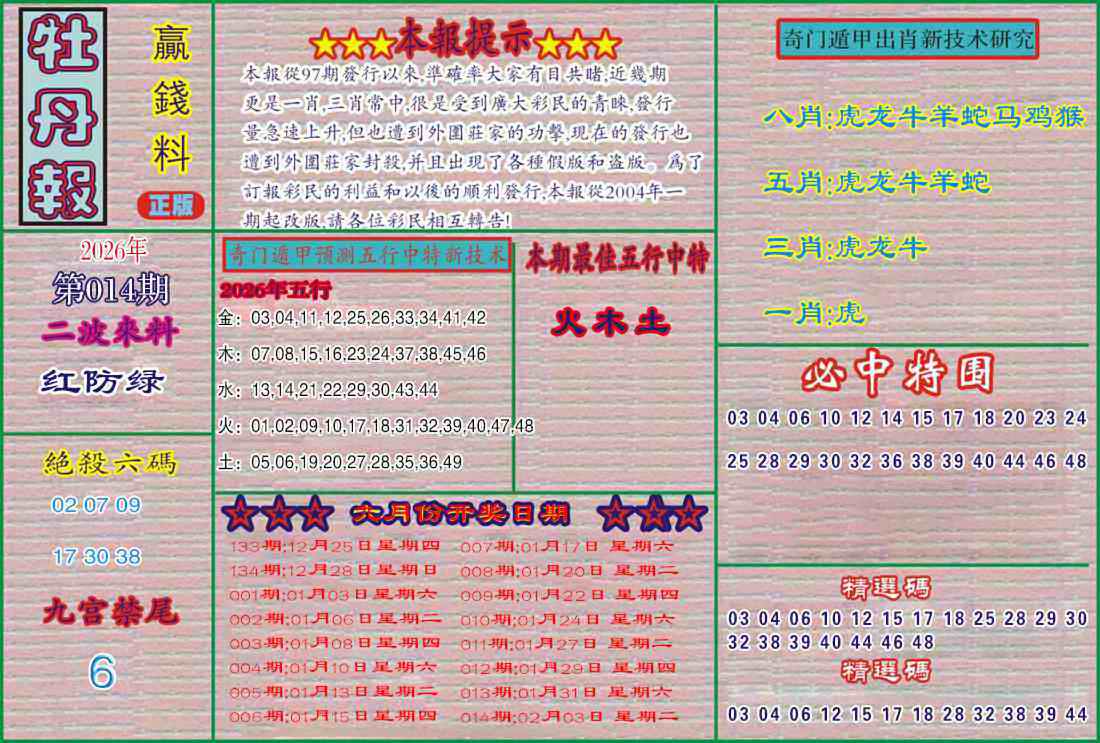 牡丹報
贏錢料
正版
2026年
第014期
二波來料
红防绿
絕殺六碼
02 07 09
17 30 38
九宫禁尾
6
★★★本報提示★★★
本報從97期發行以來,準確率大家有目共睹,近幾期
更是一肖,三肖常中,很是受到廣大彩民的青睞,發行
量急速上升,但也遭到外圍莊家的功擊,現在的發行也
遭到外圍莊家封殺,并且出現了各種假版和盗版。爲了
訂報彩民的利益和以後的順利發行,本報從2004年一
期起改版,請各位彩民相互轉告!
奇门遁甲预测五行中特新技术
2026年五行
金：03,04,11,12,25,26,33,34,41,42
木：07,08,15,16,23,24,37,38,45,46
水：13,14,21,22,29,30,43,44
火：01,02,09,10,17,18,31,32,39,40,47,48
土：05,06,19,20,27,28,35,36,49
本期最佳五行中特
火木土
☆☆☆六月份开奖日期☆☆☆
133期:12月25日星期四
134期:12月28日星期日
001期:01月03日星期六
002期:01月06日星期二
003期:01月08日星期四
004期:01月10日星期六
005期:01月13日星期二
006期:01月15日星期四
007期:01月17日 星期六
008期:01月20日 星期二
009期:01月22日 星期四
010期:01月24日 星期六
011期:01月27日 星期二
012期:01月29日 星期四
013期:01月31日 星期六
014期:02月03日 星期二
奇门遁甲出肖新技术研究
八肖:虎龙牛羊蛇马鸡猴
五肖:虎龙牛羊蛇
三肖:虎龙牛
一肖:虎
必中特围
03 04 06 10 12 14 15 17 18 20 23 24
25 28 29 30 32 36 38 39 40 44 46 48
精選碼
03 04 06 10 12 15 17 18 25 28 29 30
32 38 39 40 44 46 48
精選碼
03 04 06 12 15 17 18 28 32 38 39 44